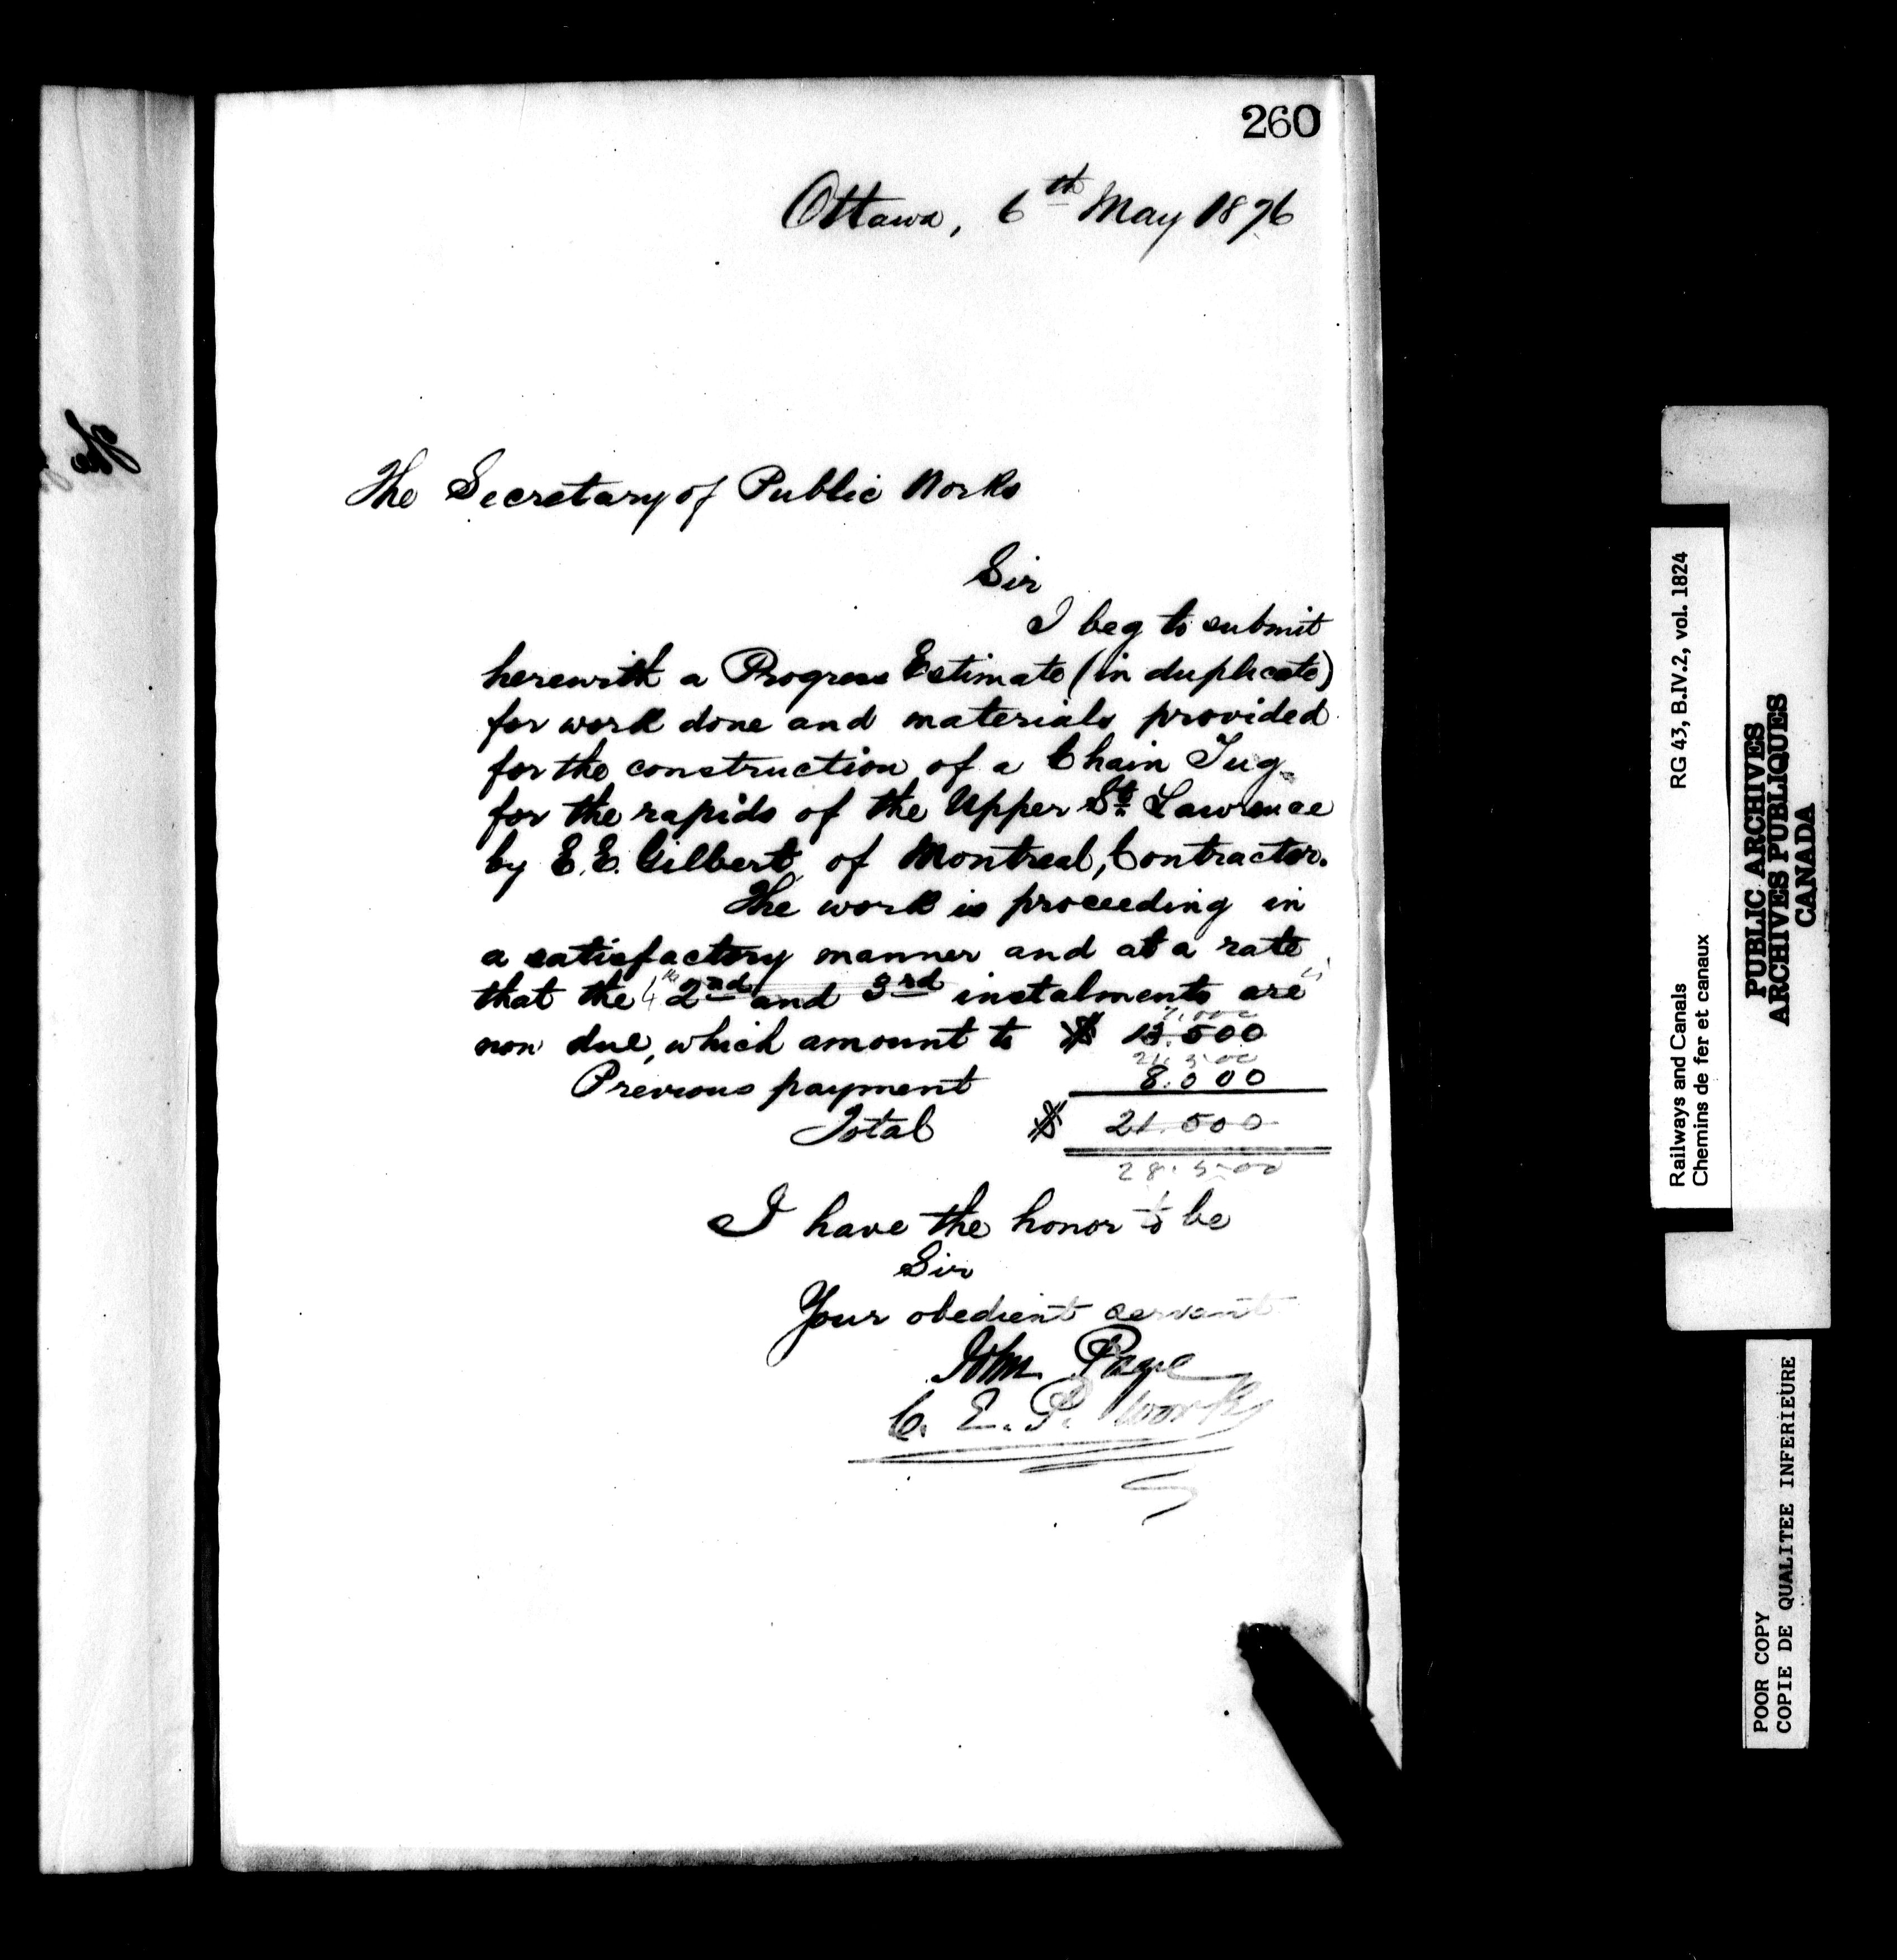 260
Ottawa, 6th May 1876
The Secretary of Public Works
Sir
I beg to submit
herewith a Progress Estimate (in duplicate)
for work done and materials provided
for the construction of a Chain Tug
for the rapids of the Upper St. Lawrence
by E. E. Gilbert of Montreal, Contractor.
The work is proceeding in
a satisfactory manner and at a rate
is
that the 4th 2nd and 3rd instalments are
7.000
now due, which amount to $ 13.500
21.500
Previous payment 8.000
Total $ 21.500
28.500
I have the honor to be
Sir
Your obedient servant
John Page
C. E. P. Works
The
Railways and Canals RG 43, B.IV.2, vol. 1824
Chemins de fer et canaux
PUBLIC ARCHIVES
ARCHIVES PUBLIQUES
CANADA
POOR COPY
COPIE DE QUALITEE INFERIEURE